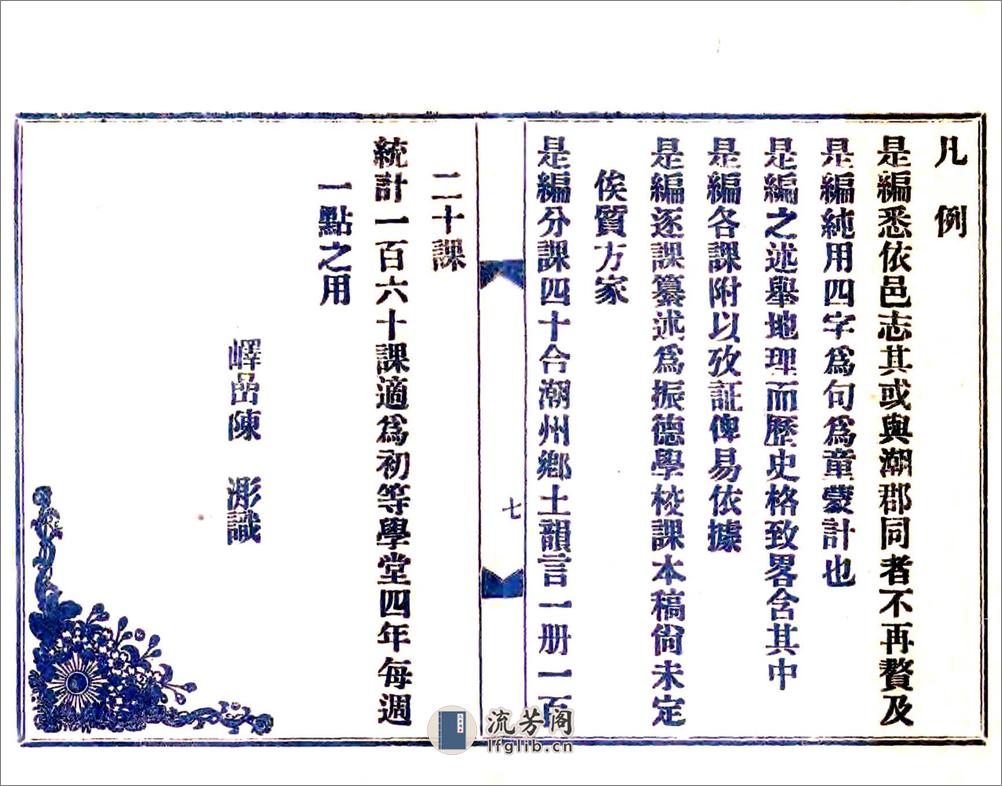 凡例
是編悉依邑志其或與潮郡同者不再贅及
是編純用四字爲句爲童蒙計也
是編之述舉地理而歷史格致畧含其中
是編各課附以攷証俾易依據
是編逐課纂述爲振德學校課本稿尙未定
俟質方家
是編分課四十合潮州鄉土韻言一册一百
七
二十課
統計一百六十課適爲初等學堂四年每週
一點之用
嶧嵒陳 澎識
流芳阁
lfglib.cn